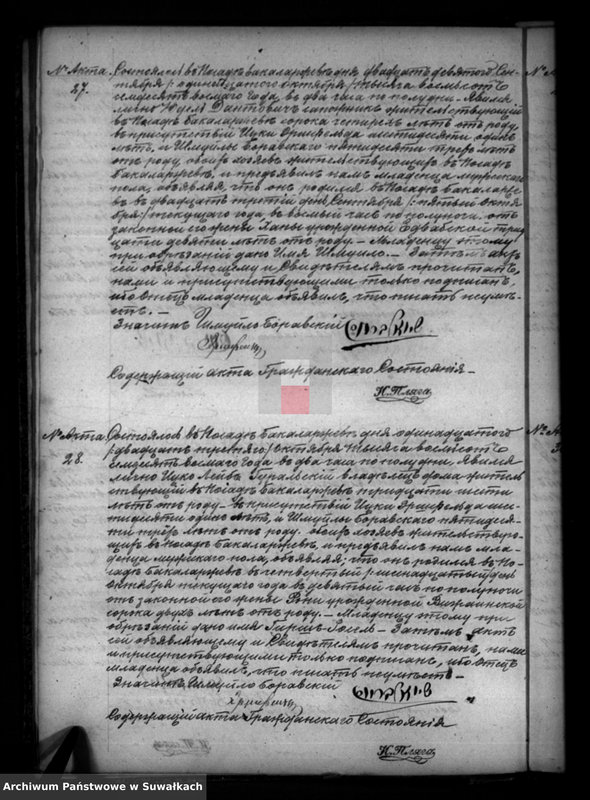 № Акта Состоялся въ Посадѣ Бакаларжевѣ дня двадцать девятого Сен-
27. тября /: одинадцатого октября :/ тысяча восемьсотъ
семдесятъ восмаго года, въ два часа по полудни. Явился
лично
въ Посадѣ Бакаларжевѣ сорока четырехъ лѣтъ отъ роду
въ присутствіи Ицки шестидесяти одинъ
лѣтъ, и Шмуилы Боравскаго пятидесяти трехъ лѣтъ
отъ роду, обоихъ жительствующихъ въ Посадѣ
Бакаларжевѣ, и предъявилъ намъ младенца мужескаго
пола, объявляя, что онъ родился въ Посадѣ Бакаларже-
вѣ въ двадцать третій день Сентября /: пятый октя-
бря :/ текущаго года, въ восемь часъ по полуночи, отъ
законной его жены Ханы урожденной трид-
цати девяти лѣтъ отъ роду. — Младенцу этому
при обрѣзаніи дано имя Шмуило. — Затѣмъ актъ
сей объявляющему и Свидѣтелямъ прочитанъ,
нами и присутствующими только подписанъ,
ибо Отецъ младенца объявилъ, что писать неумѣ-
етъ. —
Значитъ Шмуйло Боравскій
Содержащій акта Гражданскаго Состоянія —
Н. Пляга
№ Акта Состоялся въ Посадѣ Бакаларжевѣ дня одинадцатого
28. /: двадцать третяго :/ Октября тысяча восемьсотъ
семдесятъ восмаго года въ два часа по полудни. Явился
лично Ицко Лейбъ Гуральскій владѣлецъ дома житель-
ствующій въ Посадѣ Бакаларжевѣ тридцати шести
лѣтъ отъ роду — въ присутствіи Ицки ше-
стидесяти одинъ лѣтъ, и Шмуилы Боравскаго пятидеся-
ти трёхъ лѣтъ отъ роду, обоихъ жительствую-
щихъ въ Посадѣ Бакаларжевѣ, и предъявилъ намъ мла-
денца мужескаго пола, объявляя, что онъ родился въ По-
садѣ Бакаларжевѣ въ четвертый /: шестнадцатый :/ день
Октября текущаго года въ девятый часъ по полуночи
отъ законной его жены урожденной
сорока двухъ лѣтъ отъ роду. — Младенцу этому при
обрѣзаніи дано имя Гиршъ — Затѣмъ актъ
сей объявляющему и Свидѣтелямъ прочитанъ, нами
и присутствующими только подписанъ, ибо Отецъ
младенца объявилъ, что писать неумѣетъ. —
Значитъ Шмуйло Боравскій
Содержащій акта Гражданскаго Состоянія
Н. Пляга
Archiwum Państwowe w Suwałkach